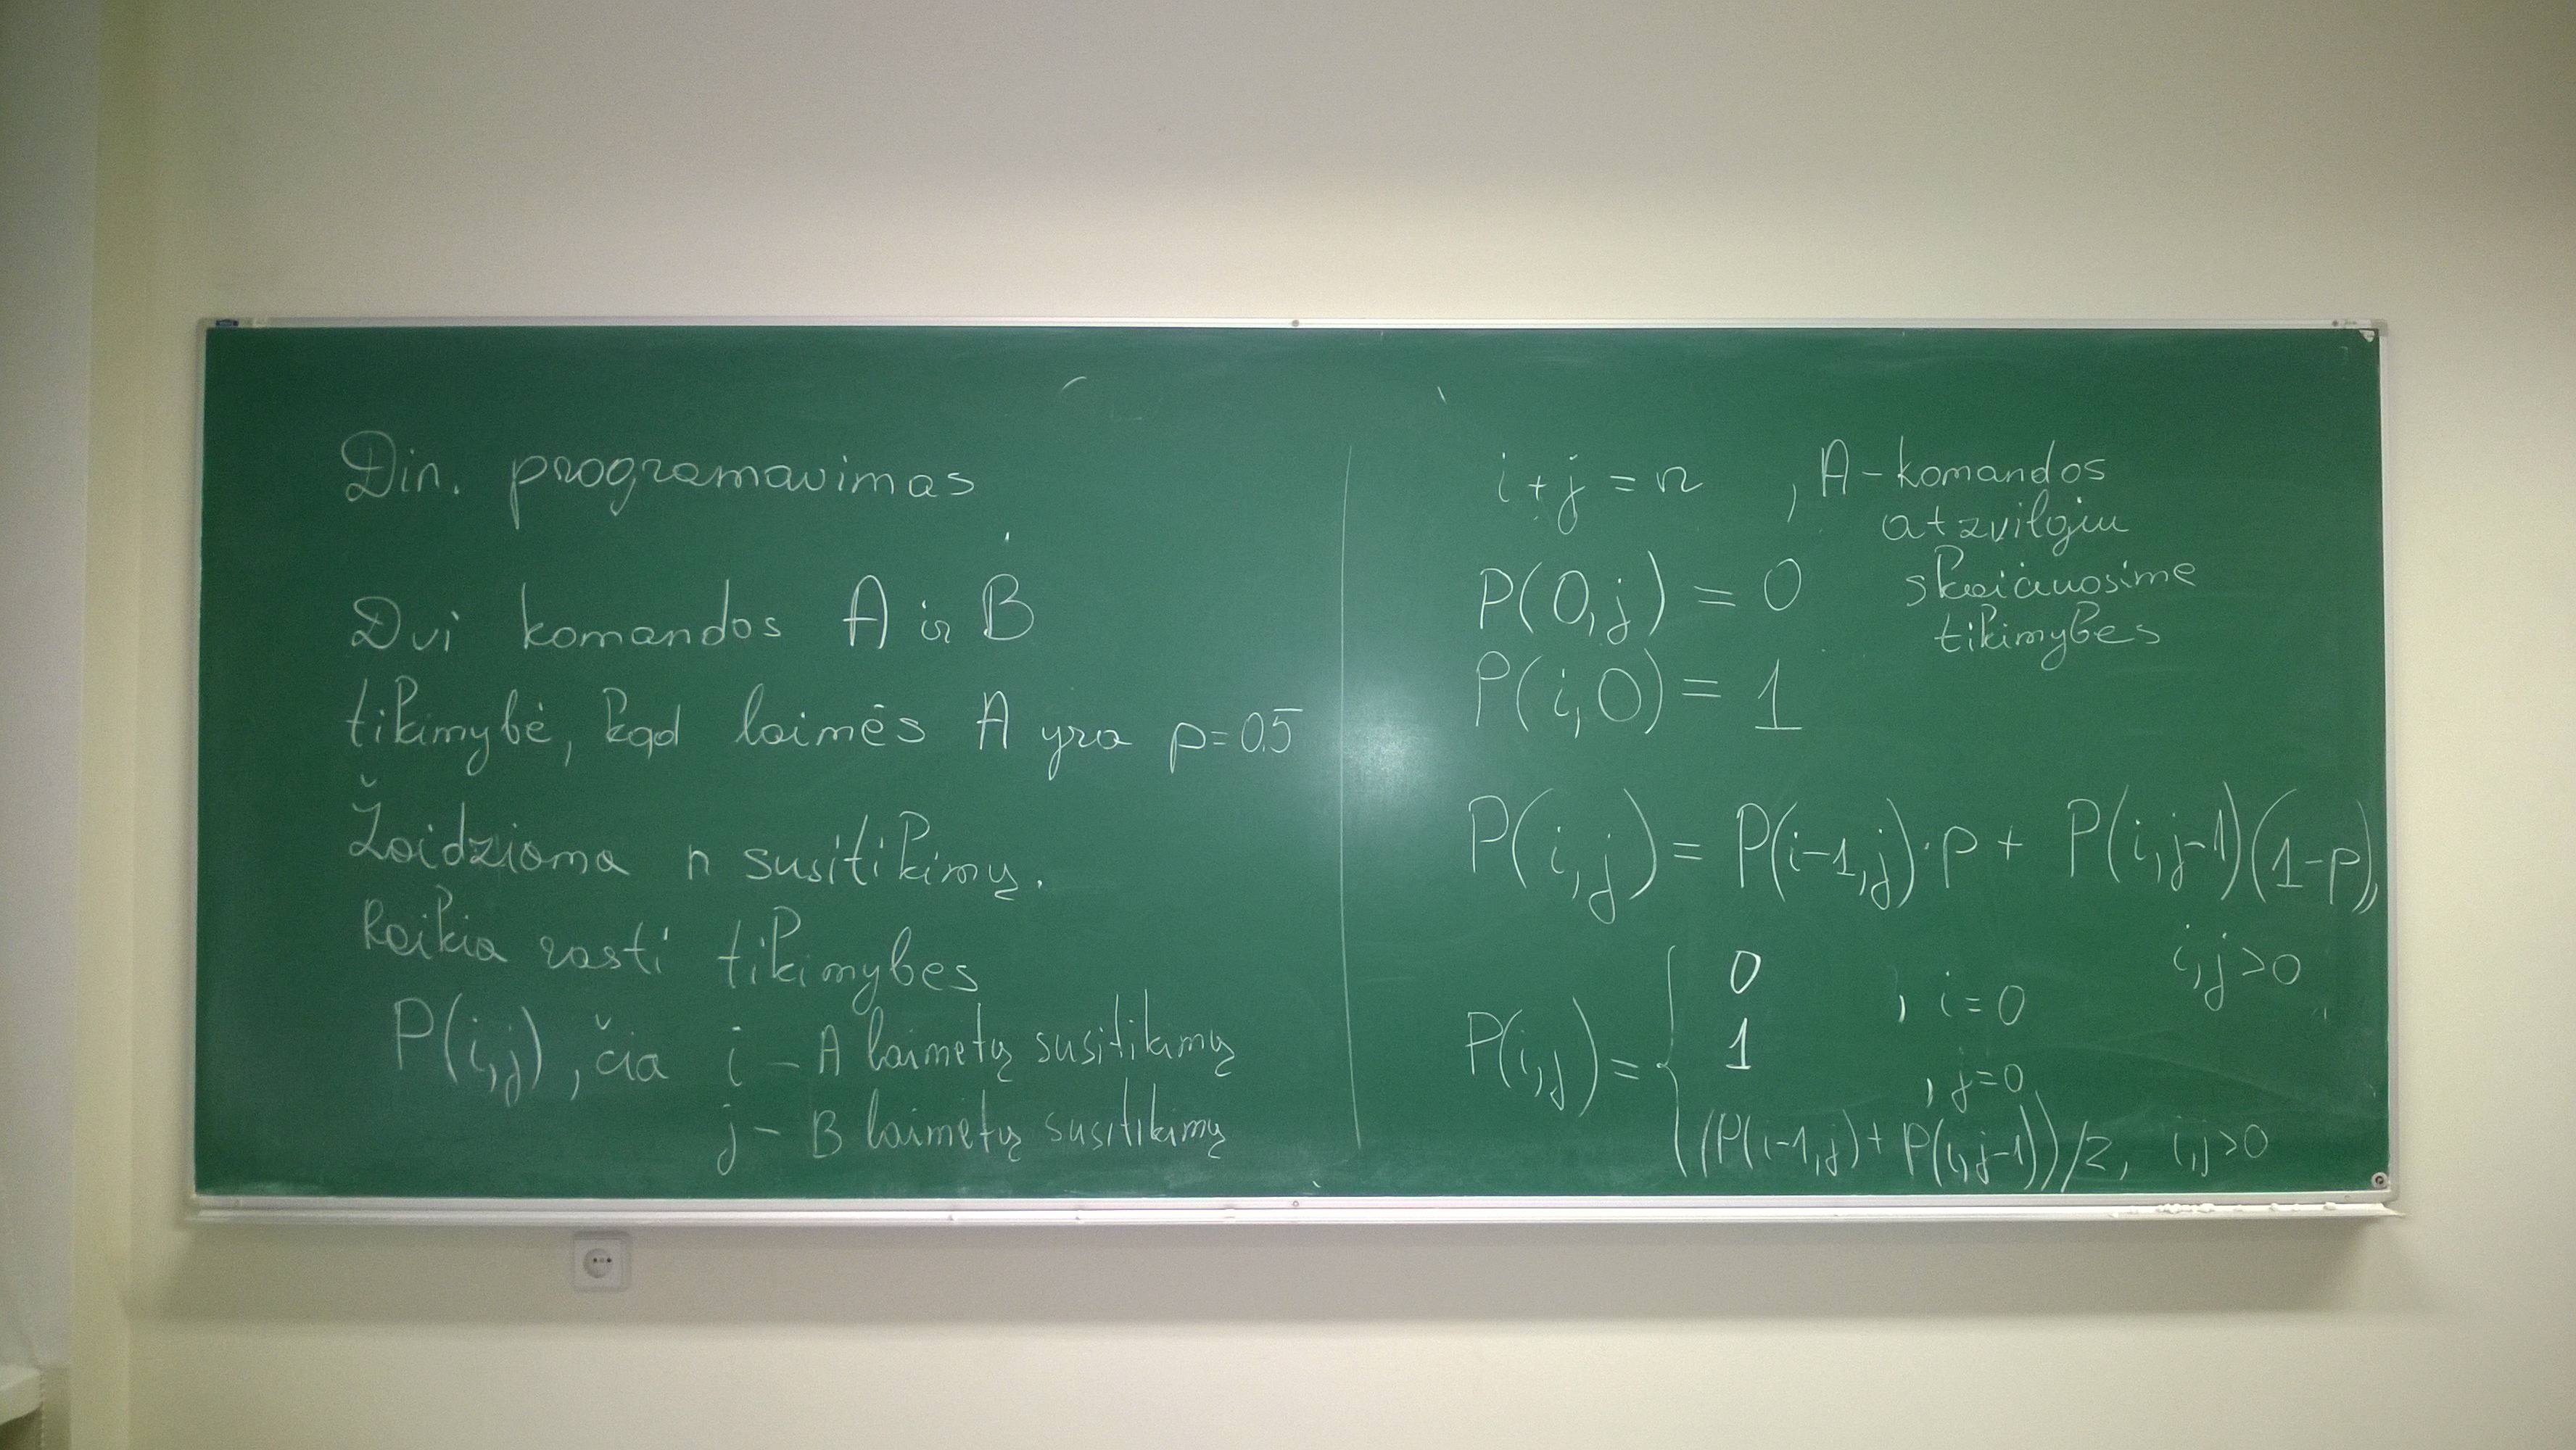 Din. programavimas
Dvi komandos A ir B
tikimybė, kad laimės A yra p=0.5
Žaidziama n susitikimų.
Reikia rasti tikimybes
P(i,j), čia i – A laimetų susitikimų
j – B laimetų susitikimų
i+j = n , A-komandos
atzvilgiu
skaičiuosime
tikimybes
P(0,j) = 0
P(i,0) = 1
P(i,j) = P(i-1,j)·p + P(i,j-1)(1-p),
i,j>0
P(i,j) = {
0 , i=0
1 , j=0
(P(i-1,j)+P(i,j-1))/2, i,j>0